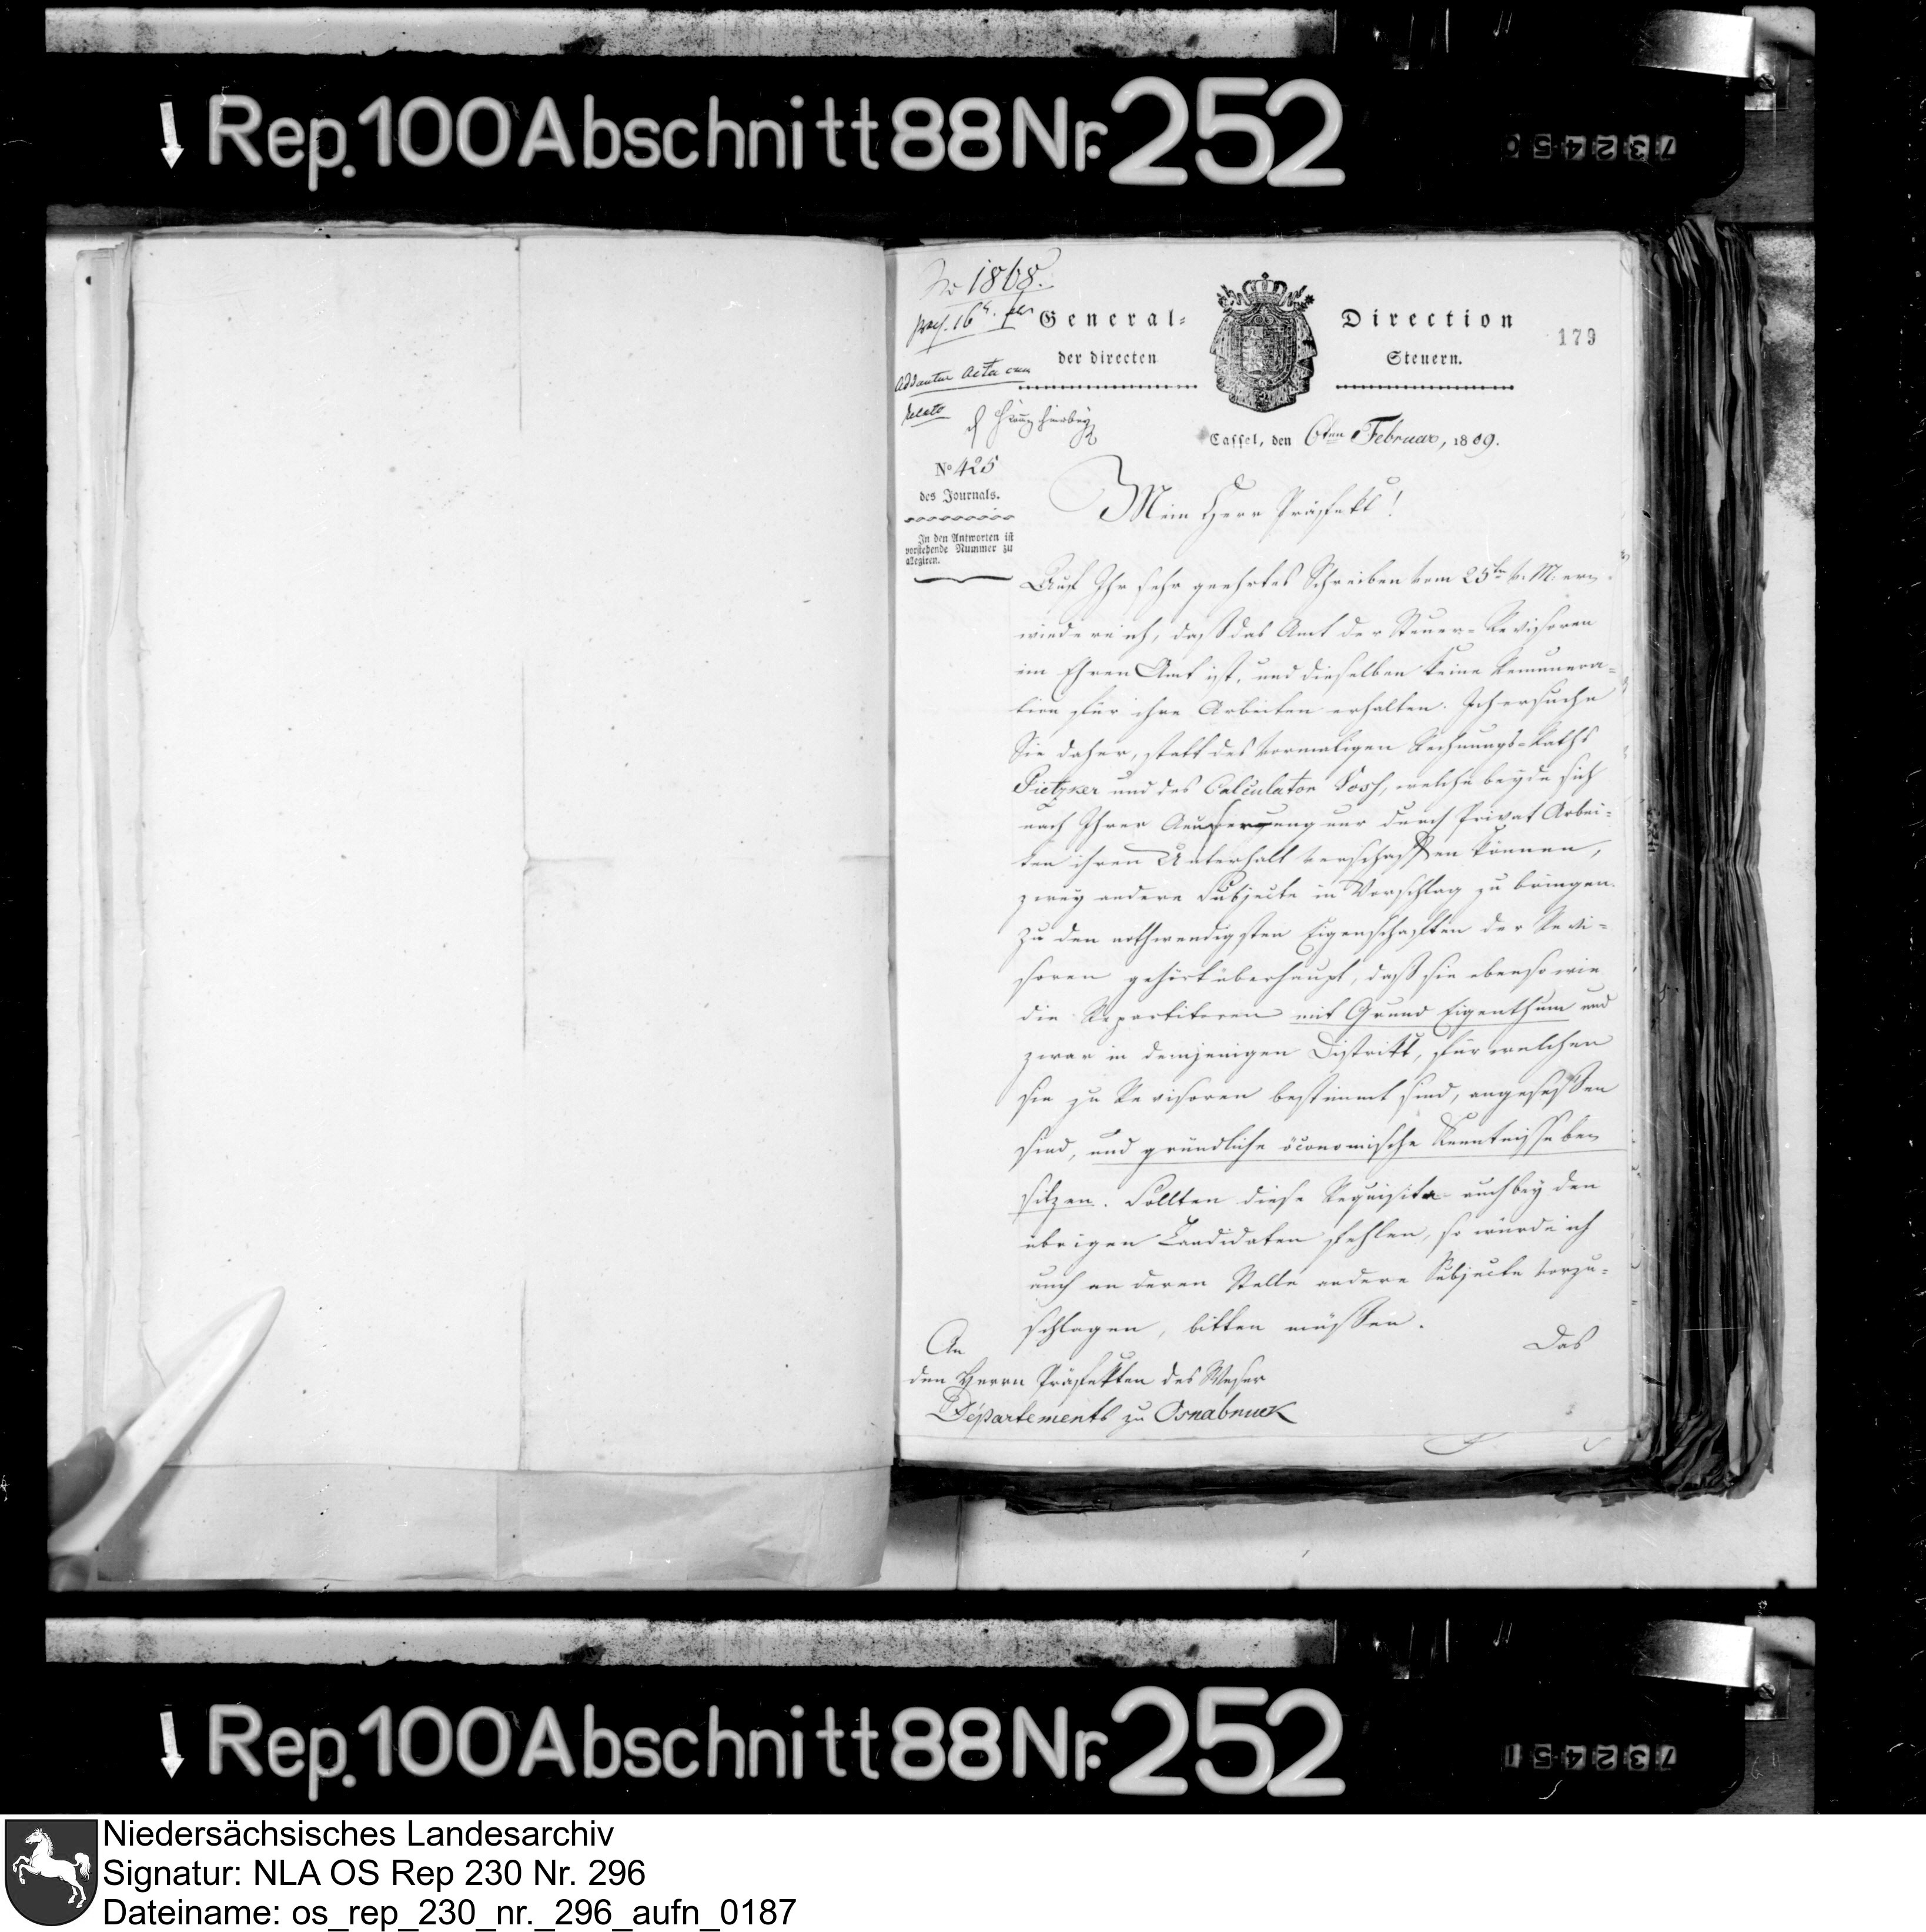 Rep. 100 Abschnitt 88 Nr. 252
732450
No 1868.
praes. 16
General-Direction
der directen Steuern.
179
Addantur Acta cum
relato
Cassel, den 6ten Februar, 1809.
No 425
des Journals.
In den Antworten ist
vorstehende Nummer zu
allegiren.
Mein Herr Präfekt!
Auf Ihr sehr geehrtes Schreiben vom 25ten v. M. er-
wiedere ich, daß das Amt der Steuer-Revisoren
ein Ehren Amt ist, und dieselben keine Remunera-
tion für ihre Arbeiten erhalten. Ich ersuche
Sie daher, statt des vormaligen Rechnungs-Raths
Pietzker und des Calculator Voss, welche beyde sich
nach Ihrer Aeusserung nur durch Privat Arbei-
ten ihren Unterhalt verschaffen können,
zwey andere Subjecte in Vorschlag zu bringen.
Zu den nothwendigsten Eigenschaften der Revi-
soren gehört überhaupt, daß sie ebenso wie
die Repartitoren mit Grund Eigenthum und
zwar in demjenigen Distrikt, für welchen
sie zu Revisoren bestimmt sind, angesessen
sind, und gründliche öconomische Kenntnisse be-
sitzen. Sollten diese Requisite auch bey den
übrigen Candidaten fehlen, so würde ich
auch an deren Stelle andere Subjecte vorzu-
schlagen, bitten müssen.
Das
An
den Herrn Präfekten des Weser
Départements zu Osnabruck
Rep. 100 Abschnitt 88 Nr. 252
732451
Niedersächsisches Landesarchiv
Signatur: NLA OS Rep 230 Nr. 296
Dateiname: os_rep_230_nr._296_aufn_0187